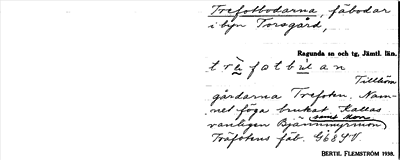 Trefotbodarna, fäbodar
i byn Torsgård,
Ragunda sn och tg, Jämtl. län.
Tillhöra
gårdarna Trefoten. Nam-
net föga brukat. Kallas
vanligen Bjännmyrmon
Träfotens fäb. G68SV.
BERTIL FLEMSTRÖM 1938.